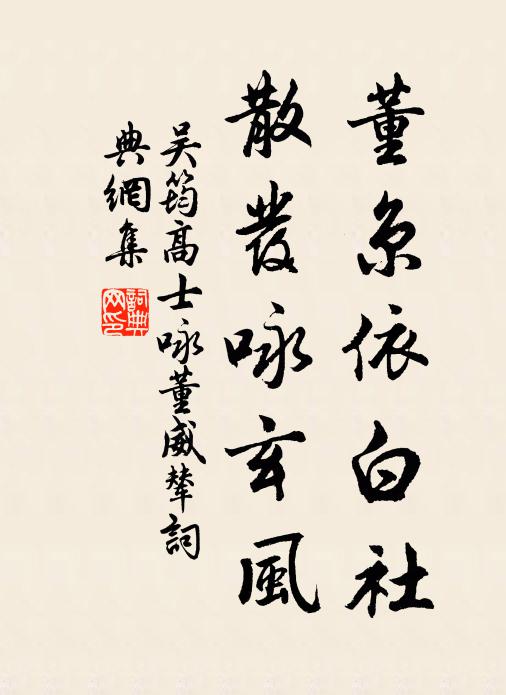 董京依白社
散發咏玄風
吴筠高士咏董威輦詞
典網集
詞典
网印